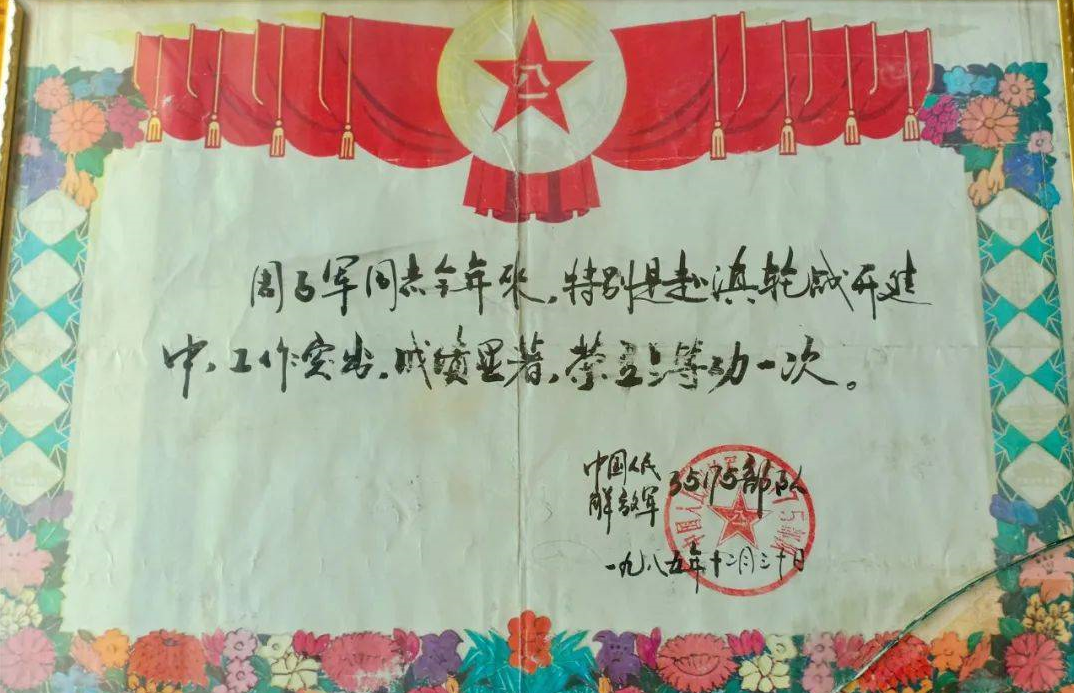 八一
周子军同志今年来，特别是赴滇轮战开进
中，工作突出，成绩显著，荣立三等功一次。
中国人民
解放军
35175部队
一九八五年十二月三十日